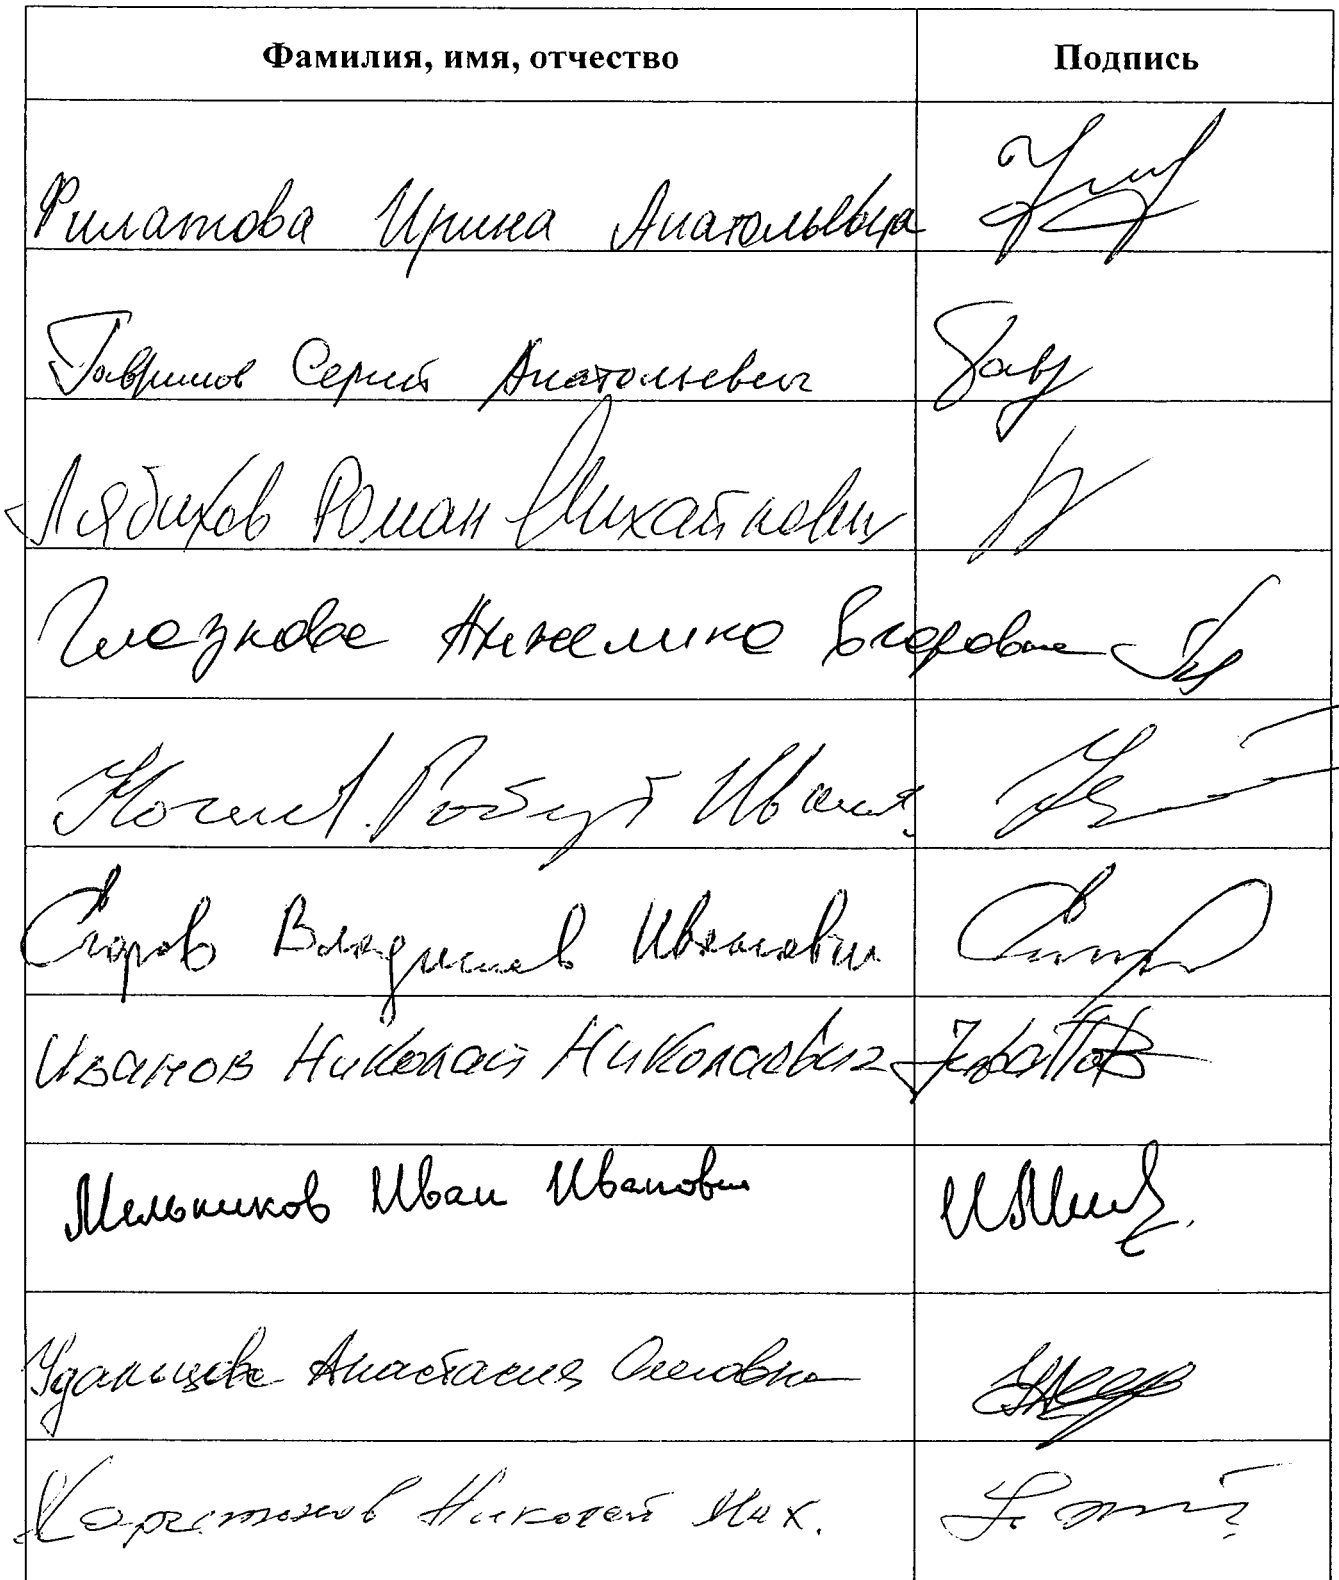 Фамилия, имя, отчество Подпись
Филатова Ирина Анатольевна
Гаврилов Сергей Анатольевич Гавр
Лябихов Роман Михайлович
Глазкова Анжелика Егоровна
Кочиев Роберт Иванов.
Егоров Владислав Иванович
Иванов Николай Николаевич Иванов
Мельников Иван Иванович
Удальцова Анастасия Олеговна
Харитонов Николай Мих.